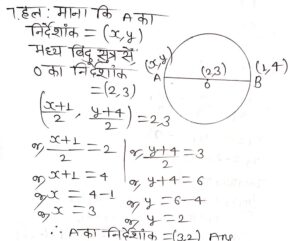 7.हल: माना कि A का
निर्देशांक = (x,y)
मध्य बिंदु सुत्र से
O का निर्देशांक
=(2,3)
(x+1/2, y+4/2)=2,3
or, x+1/2 = 2
or, x+1 = 4
or, x = 4-1
or, x = 3
or, y+4/2 = 3
or, y+4 = 6
or, y = 6-4
or, y = 2
∴ A का निर्देशांक =(3,2) Ans
(x,y)
A
(2,3)
O
(1,4)
B